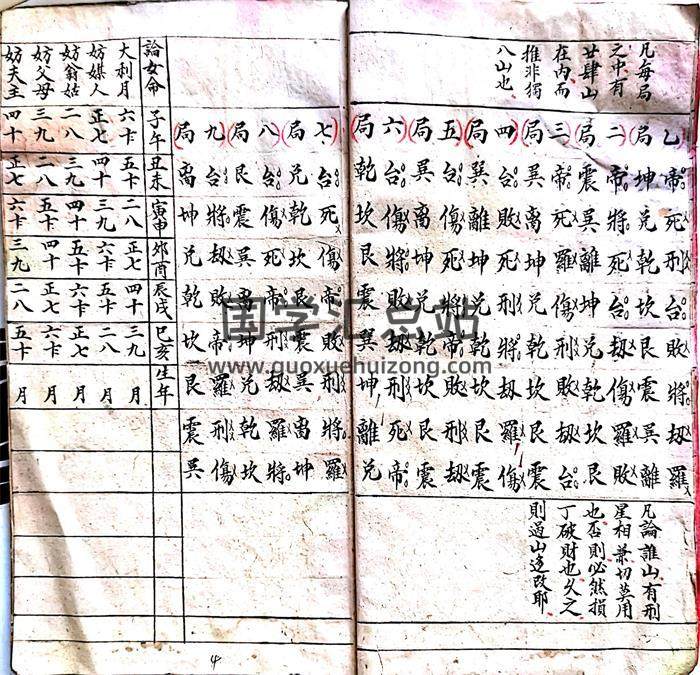 凡每局
之中有
廿肆山
在内而
推非獨
八山也
乙帝死刑台敗羅
局坤兌乾坎艮震巽離
二帝將死台劫傷羅敗
局震巽離坤兌乾坎艮
三帝死羅傷刑敗劫台
局巽離坤兌乾坎艮震
四台敗死刑將劫羅傷
局巽離坤兌乾坎艮震
五台傷死將帝敗刑劫
局巽离坤兌乾坎艮震
六台傷將敗劫刑死帝
局乾坎艮震巽坤離兌
凡論誰山有刑
星相兼切莫用
也否則必然損
丁破財也久之
則過山迯改耶
七台死傷帝敗刑將羅
局兌乾坎艮震巽离坤
八台傷死敗刑劫羅將
局艮震巽离坤兌乾坎
九台將劫敗帝羅刑傷
局离坤兌乾坎艮震巽
論女命子午丑未寅申夘酉辰戌巳亥生年
大利月六卡五卡二八正七四十三九月
妨媒人正七四十三九六卡五卡二八月
妨翁姑二八三九四十五卡六卡正七月
妨父母三九二八五卡四十正七六卡月
妨夫主四十正七六卡三九二八五卡月
4
国学汇总站
www.guoxuehuizong.com